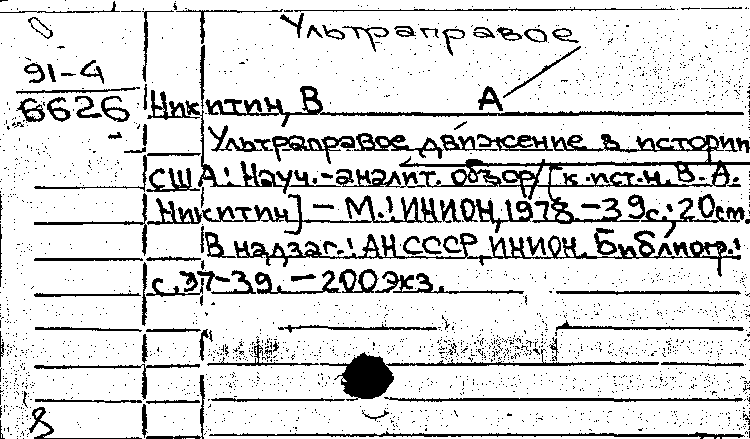 Ультраправое
91-4
6626
Никитин, В А
Ультраправое движение в истории
США: Науч.-аналит. обзор/[к.ист.н. В.А.
Никитин] - М.: ИНИОН, 1978. - 39 с.; 20 см.
В надзаг.: АН СССР, ИНИОН. Библиогр.:
с. 37-39. - 200 экз.